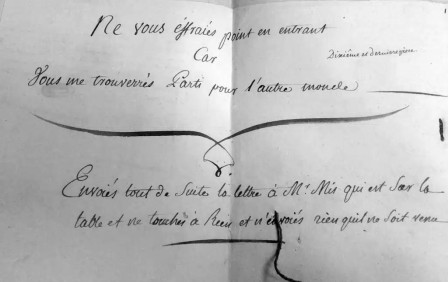 Ne vous éffraiés point en entrant
Car
Dixième et dernière pièce
Vous me trouverrés Parti pour l'autre monde
Envoiés tout de Suite la lettre à Mr. Mis qui est Sur la
table et ne touchés à Rien et n'envoiés rien quil ne Soit venu